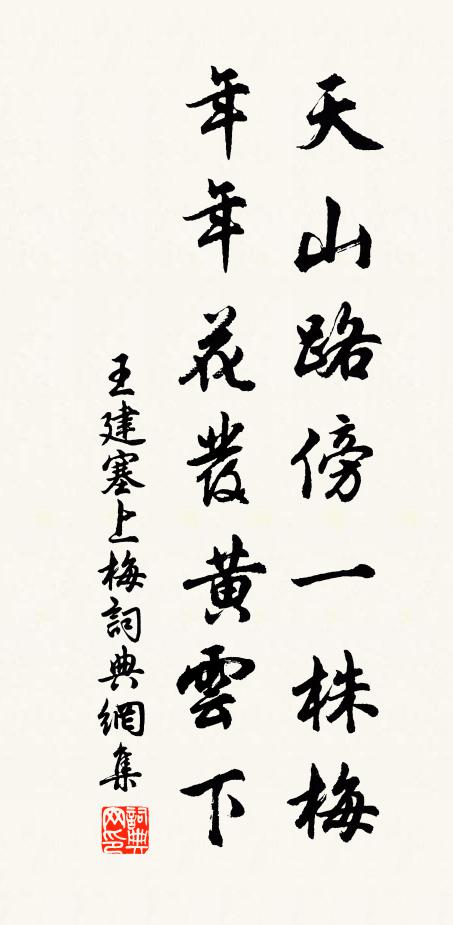 天山路傍一株梅
年年花發黃雲下
王建塞上梅詞典網集
詞典网印